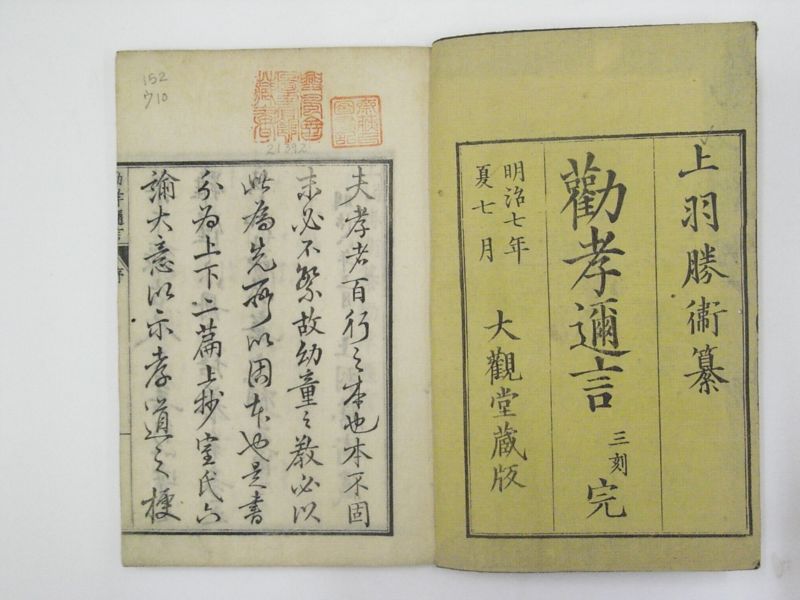 上羽勝衛纂
勸孝邇言 三刻 完
明治七年
夏七月
大觀堂藏版
152
ウ10
21392
夫孝者百行之本也本不固
末必不繁故幼童之教必以
此為先所以固本也是書
分為上下二篇上抄室氏六
諭大意以示孝道之梗